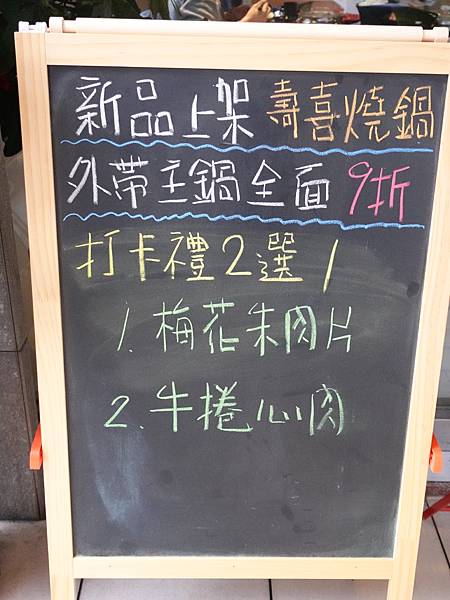 新品上架 壽喜燒鍋
外帶主鍋全面9折
打卡禮2選1
1.梅花朱肉片
2.牛捲心肉